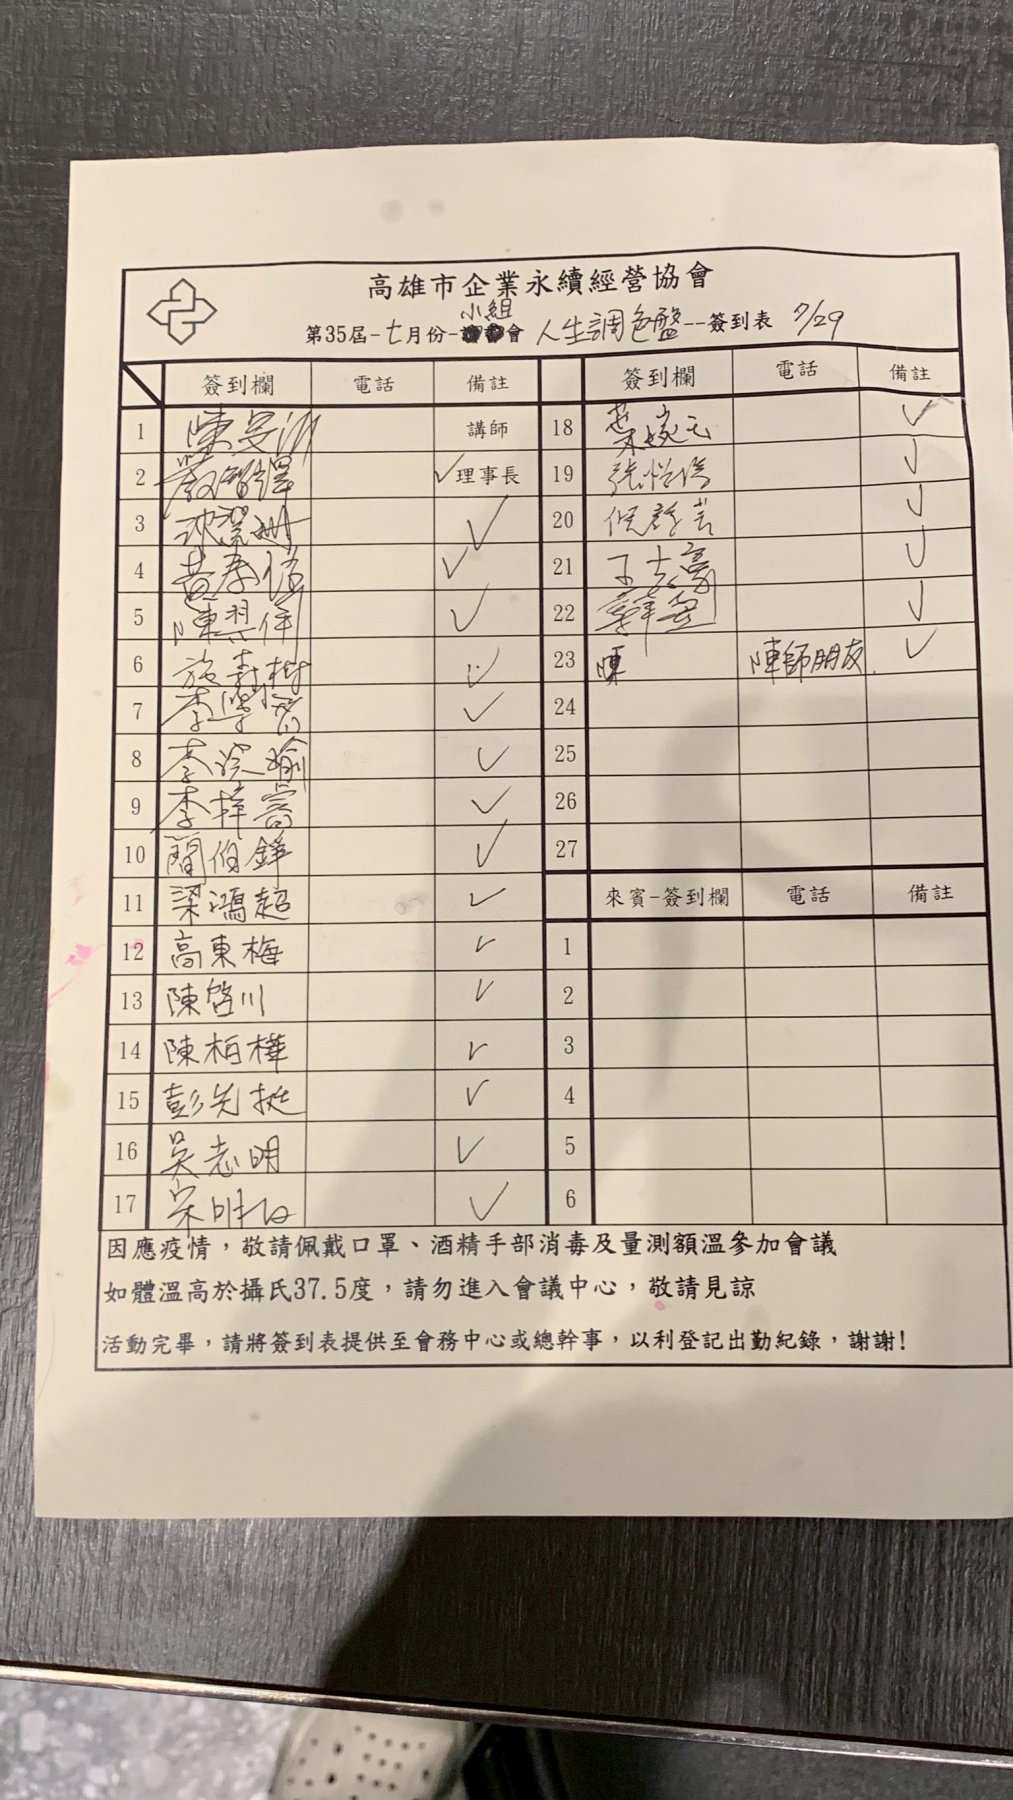 高雄市企業永續經營協會
小組
第35屆-七月份-會 人生調色盤--簽到表 7/29
簽到欄 電話 備註
1 講師
2 ✓理事長
3 ✓
4 ✓
5 陳 ✓
6 ✓
7 李學 ✓
8 李 ✓
9 李梓 ✓
10 簡伯錚 ✓
11 梁鴻超 ✓
12 高東梅 ✓
13 陳啓川 ✓
14 陳柏樺 ✓
15 彭先挺 ✓
16 吳志明 ✓
17 宋明 ✓
簽到欄 電話 備註
18 葉婉 ✓
19 張 ✓
20 ✓
21 ✓
22 ✓
23 陳 陳師朋友 ✓
24
25
26
27
來賓-簽到欄 電話 備註
1
2
3
4
5
6
因應疫情,敬請佩戴口罩、酒精手部消毒及量測額溫參加會議
如體溫高於攝氏37.5度,請勿進入會議中心,敬請見諒
活動完畢,請將簽到表提供至會務中心或總幹事,以利登記出勤紀錄,謝謝!